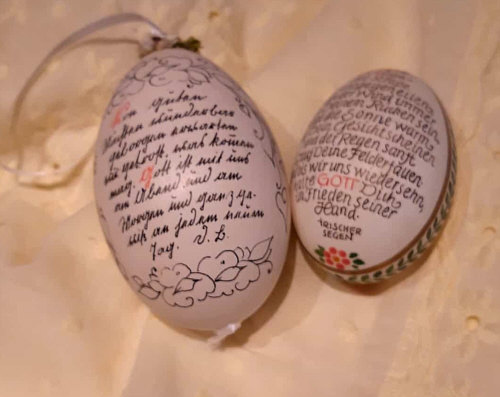 Von guten
Mächten wunderbar
geborgen erwarten
wir getrost, was kommen
mag. Gott ist mit uns
am Abend und am
Morgen und ganz ge-
wiß an jedem neuen
Tag. D. B.
Wind immer
Deinem Rücken sein,
die Sonne warm
Dein Gesicht scheinen
und der Regen sanft
auf Deine Felder fallen
bis wir uns wiedersehn,
halte GOTT Dich
im Frieden seiner
Hand.
IRISCHER
SEGEN